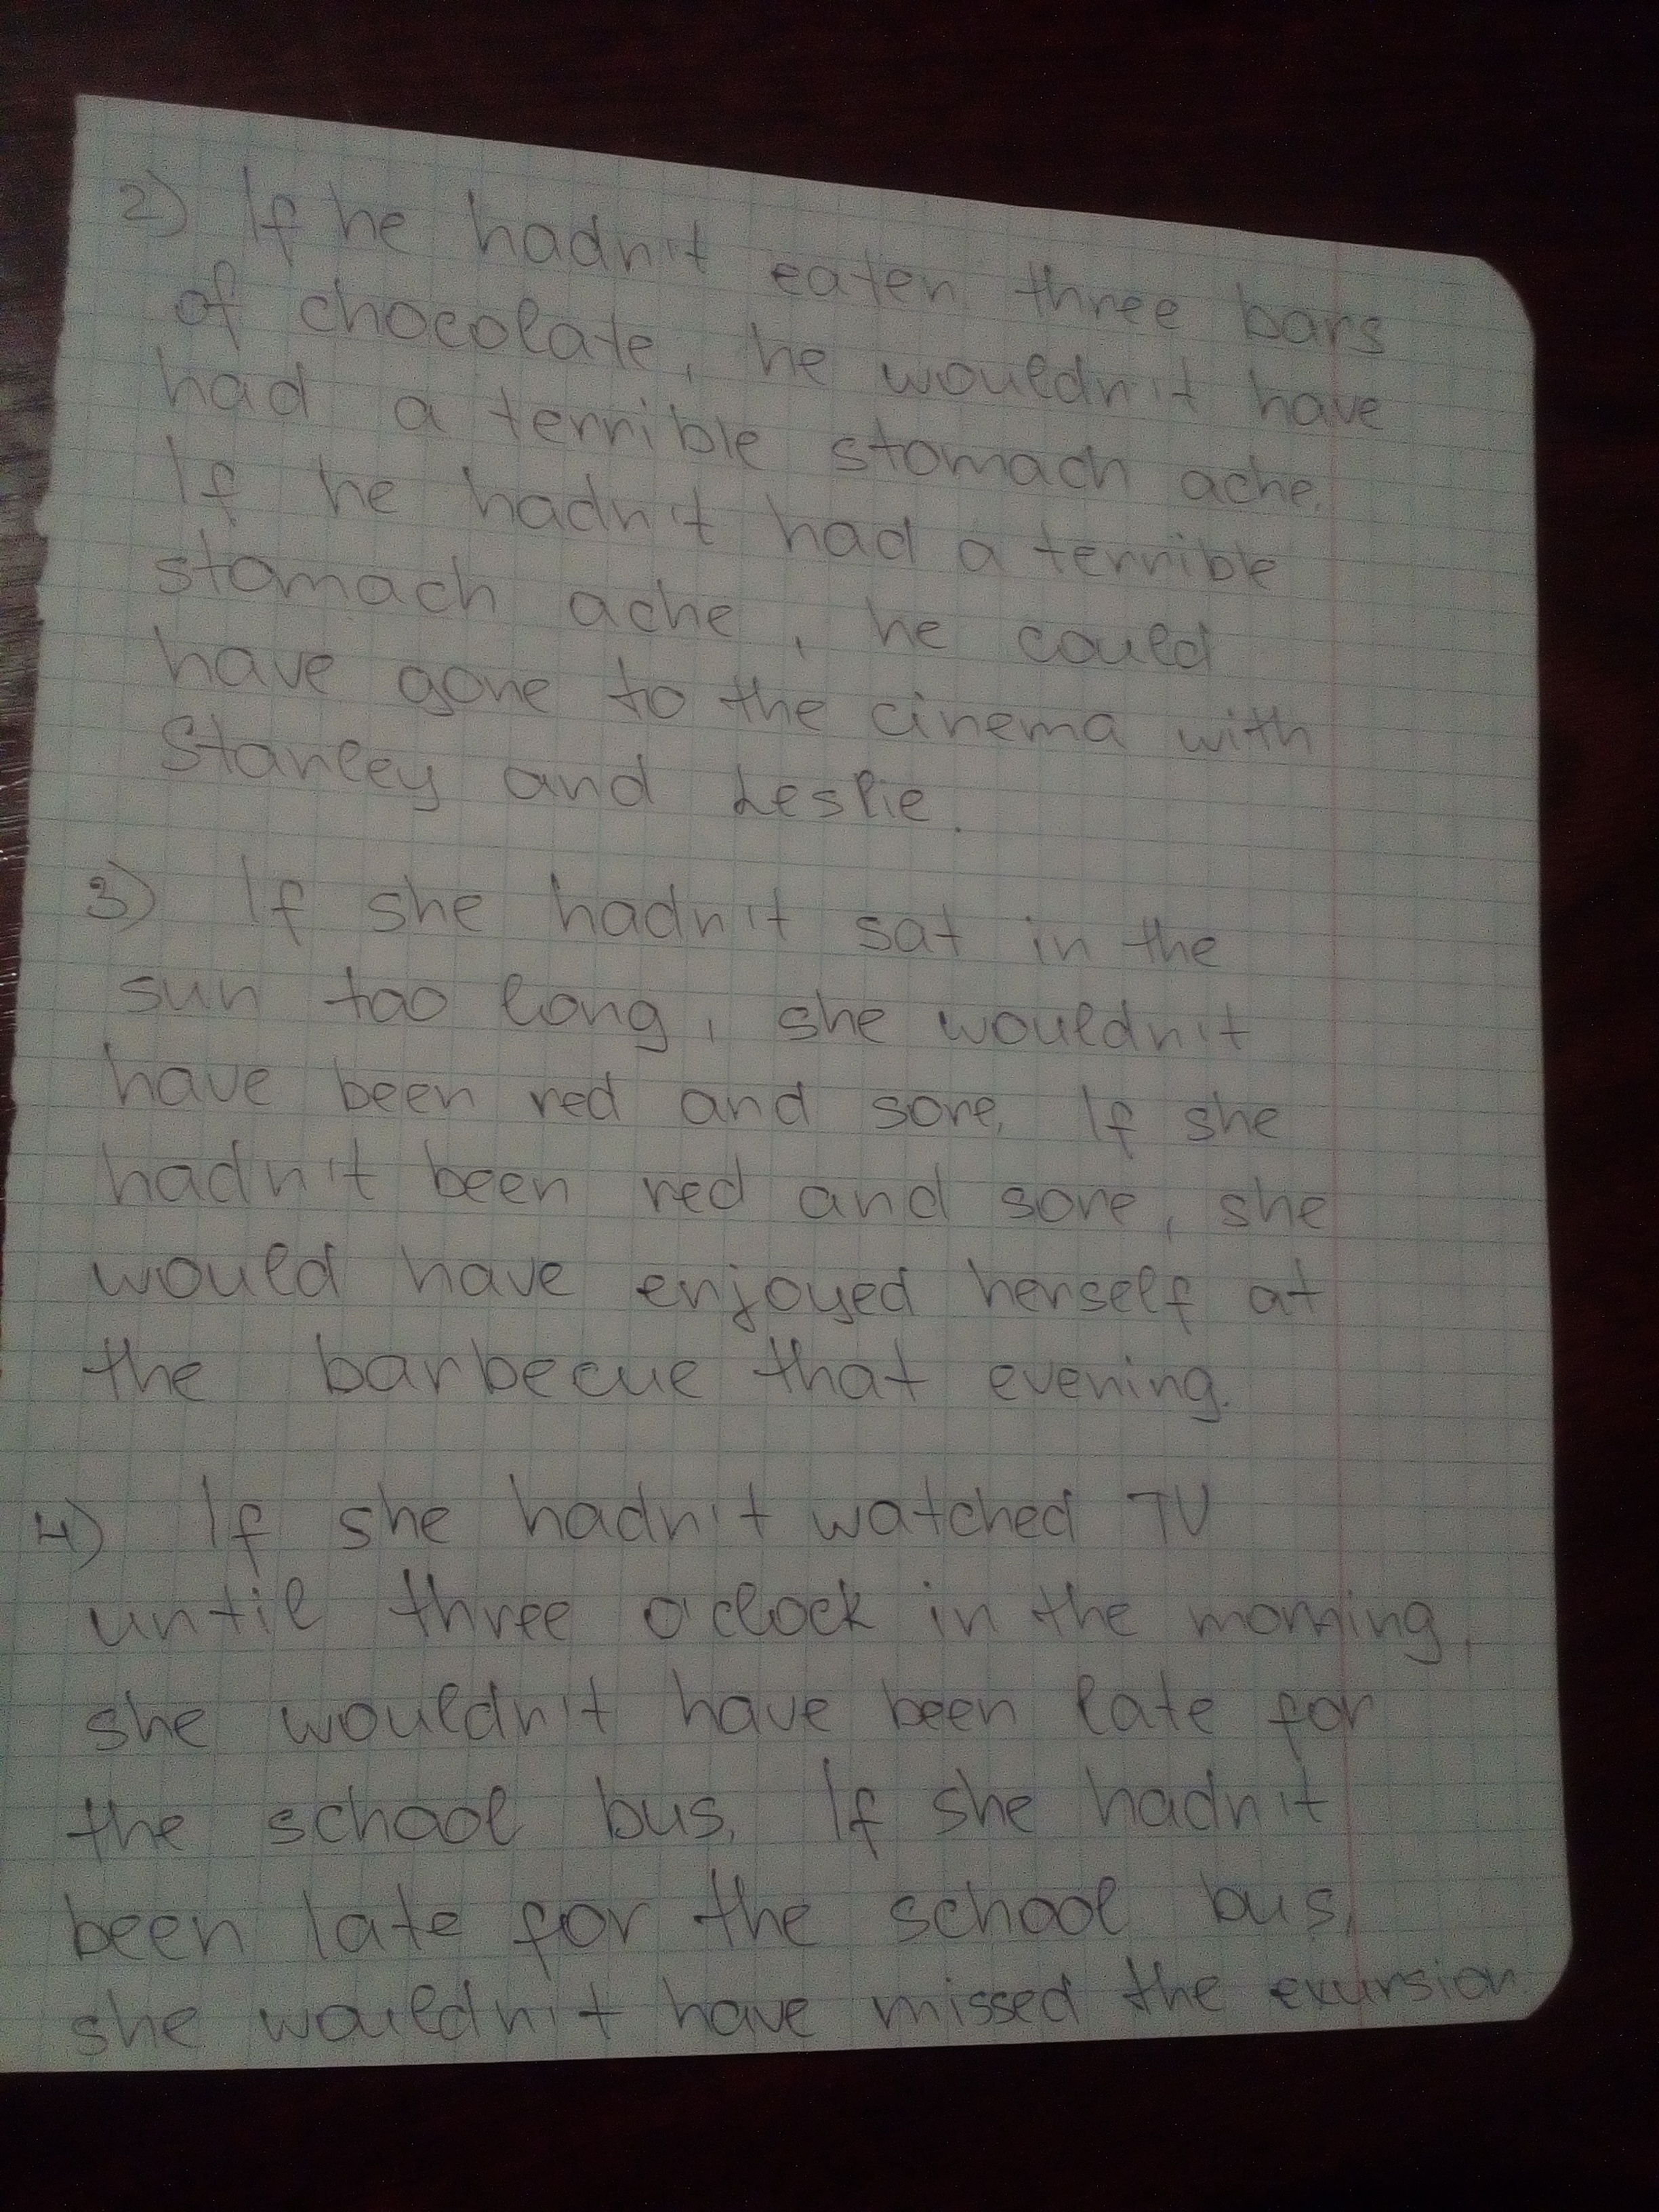 2) If he hadn't eaten three bars
of chocolate, he wouldn't have
had a terrible stomach ache.
If he hadn't had a terrible
stomach ache, he could
have gone to the cinema with
Stanley and Leslie.
3) If she hadn't sat in the
sun too long, she wouldn't
have been red and sore. If she
hadn't been red and sore, she
would have enjoyed herself at
the barbecue that evening.
4) If she hadn't watched TV
until three o'clock in the morning,
she wouldn't have been late for
the school bus. If she hadn't
been late for the school bus,
she wouldn't have missed the excursion